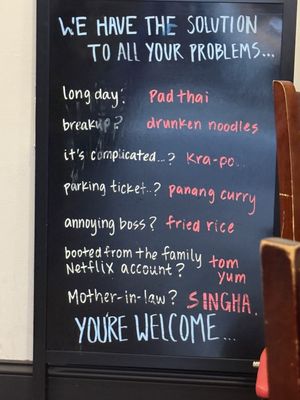 WE HAVE THE SOLUTION
TO ALL YOUR PROBLEMS...
long day? Pad thai
breakup? drunken noodles
it's complicated...? kra-po..
parking ticket..? panang curry
annoying boss? fried rice
booted from the family
Netflix account? tom yum
Mother-in-law? SINGHA.
YOU'RE WELCOME...